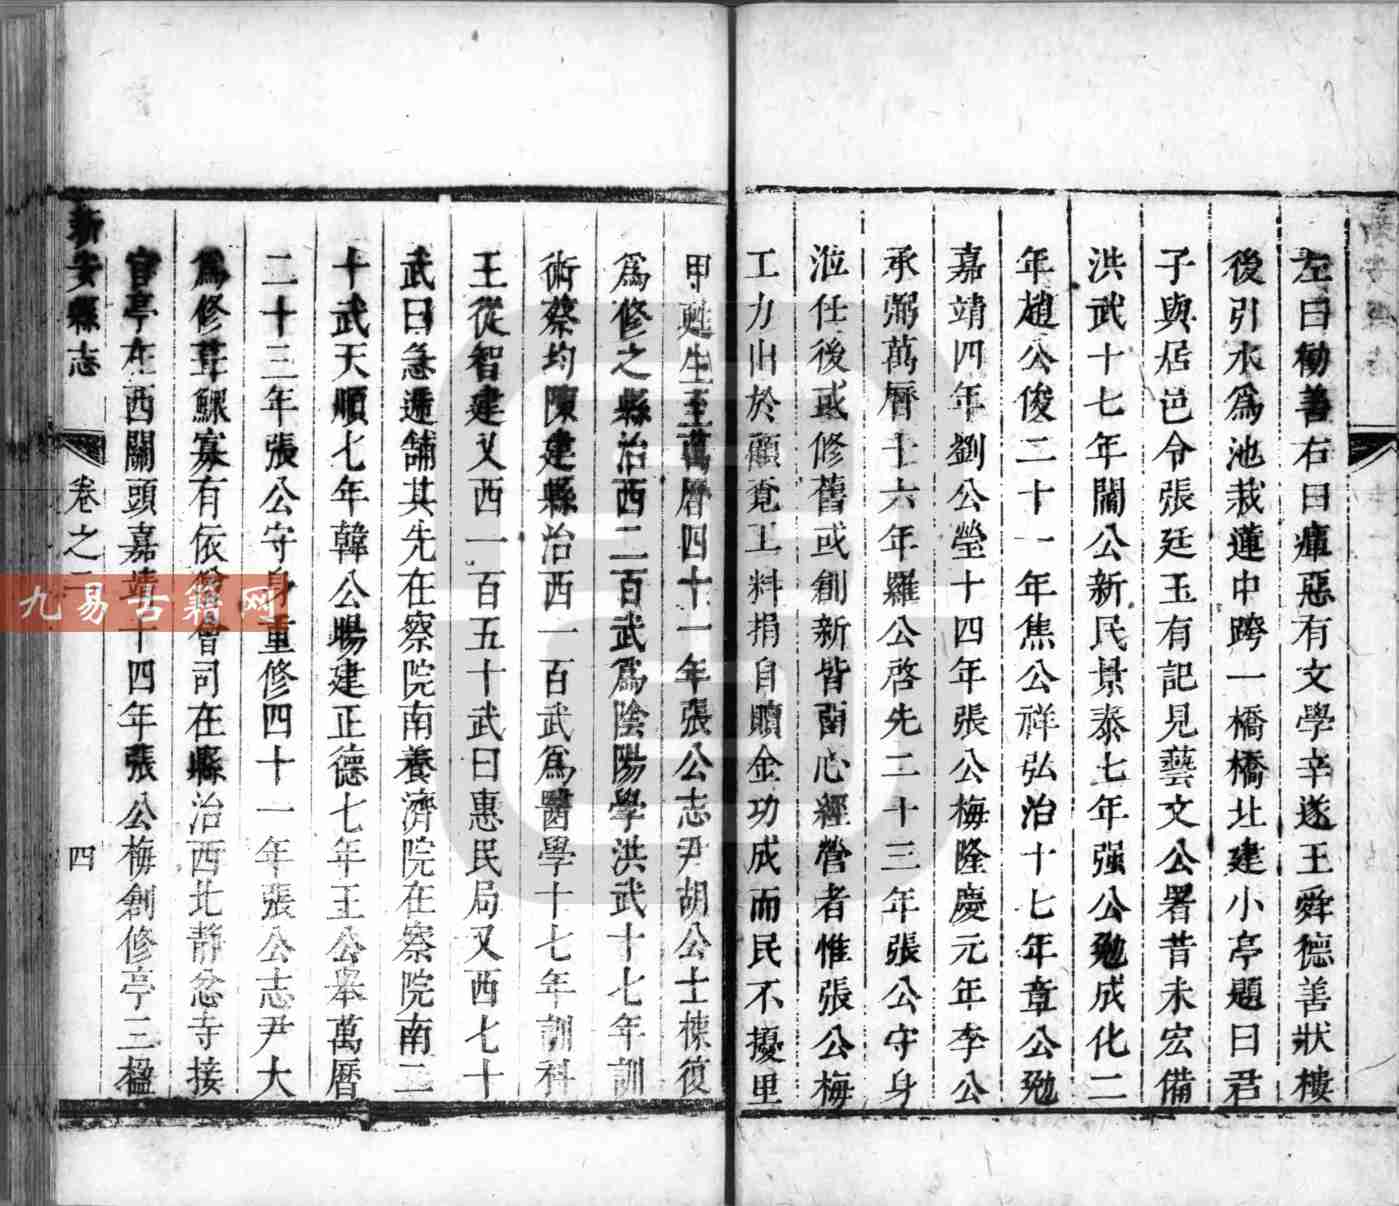 左曰勸善右曰癉惡有文學辛遂王舜德善狀樓
後引水爲池栽蓮中跨一橋橋北建小亭題曰君
子與居邑令張廷玉有記見藝文公署昔未宏備
洪武十七年閻公新民景泰七年强公勉成化二
年趙公俊二十一年焦公祥弘治十七年章公勉
嘉靖四年劉公瑩十四年張公梅隆慶元年李公
承弼萬曆十六年羅公啓先二十三年張公守身
涖任後或修舊或創新皆留心經營者惟張公梅
工力出於顧覓工料捐自贖金功成而民不擾里
甲甦生至萬曆四十一年張公志尹胡公士棟復
爲修之縣治西二百武爲陰陽學洪武十七年訓
術蔡均陳建縣治西一百武爲醫學十七年訓科
王從智建又西一百五十武曰惠民局又西七十
武曰急遞舖其先在察院南養濟院在察院南二
十武天順七年韓公暘建正德七年王公舉萬曆
二十三年張公守身重修四十一年張公志尹大
爲修葺鰥寡有依會司在縣治西北靜念寺接
官亭在西關頭嘉靖十四年張公梅創修亭三楹
新安縣志 卷之二 四
九易古籍网